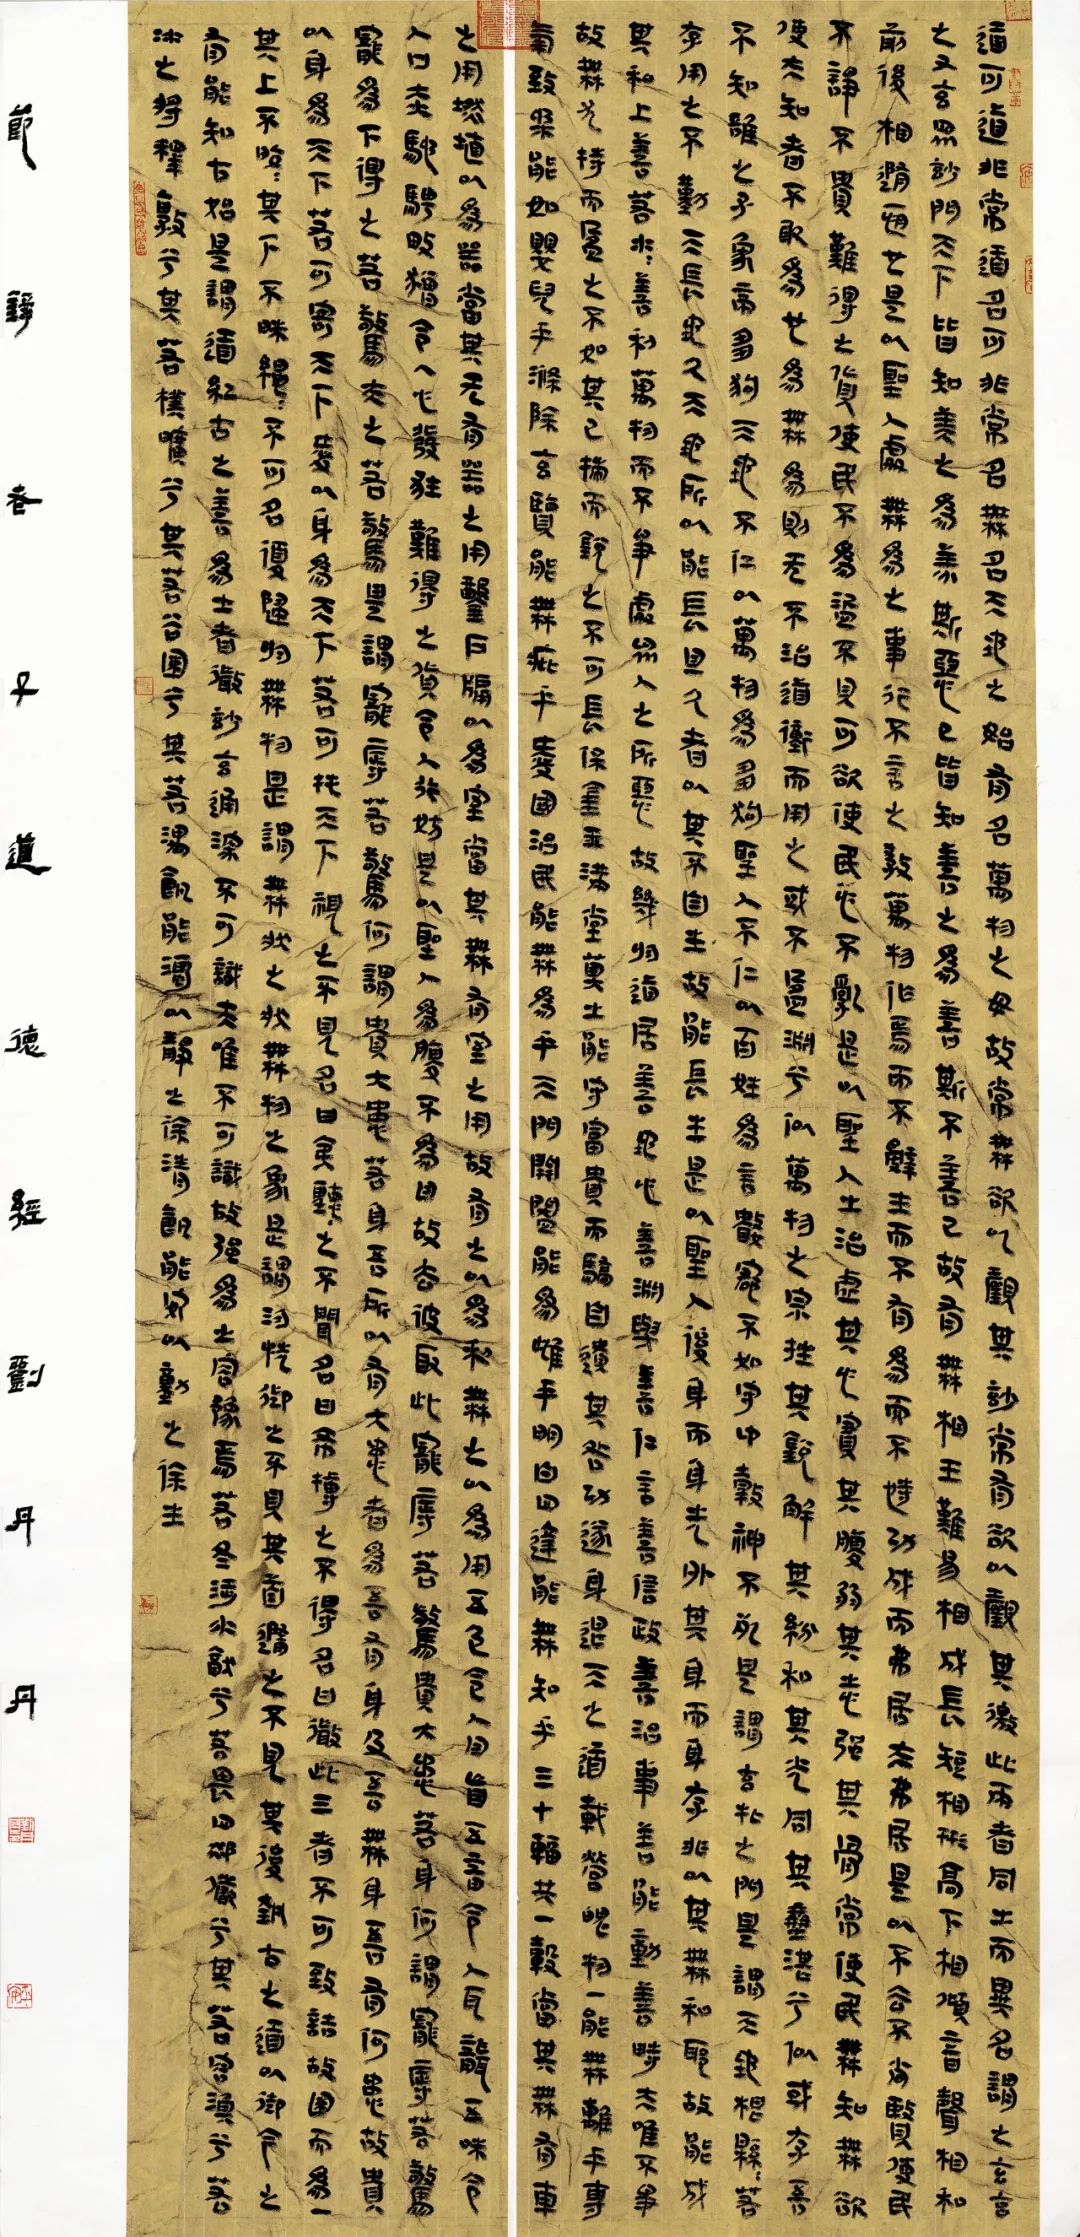 道可道非常道名可非常名無名天地之始有名萬物之母故常無欲以觀其妙常有欲以觀其徼此兩者同出而異名謂之玄玄
之又玄眾妙門天下皆知美之為美斯惡已皆知善之為善斯不善已故有無相生難易相成長短相形高下相傾音聲相和
前後相隨恒也是以聖人處無為之事行不言之教萬物作焉而不辭生而不有為而不恃功成而弗居夫弗居是以不去不尚賢使民
不諍不貴難得之貨使民不為盜不見可欲使民心不亂是以聖人之治虛其心實其腹弱其志強其骨常使民無知無欲
使夫知者不敢為也為無為則无不治道衝而用之或不盈淵兮似萬物之宗挫其銳解其紛和其光同其塵湛兮似或存吾
不知誰之子象帝芻狗天地不仁以萬物為芻狗聖人不仁以百姓為言數窮不如守中穀神不死是謂玄牝之門是謂天地根緜緜若
存用之不勤天長地久天地所以能長且久者以其不自生故能長生是以聖人後身而身先外其身而身存非以其無私耶故能成
其私上善若水善利萬物而不爭處眾人之所惡故幾於道居善地心善淵與善仁言善信政善治事善能動善時夫唯不爭
故無尤持而盈之不如其已揣而銳之不可長保金玉滿堂莫之能守富貴而驕自遺其咎功遂身退天之道載營魄抱一能無離乎專
氣致柔能如嬰兒乎滌除玄覽能無疵乎愛國治民能無為乎天門開闔能為雌乎明白四達能無知乎三十輻共一轂當其無有車
之用埏埴以為器當其无有器之用鑿戶牖以為室當其無有室之用故有之以為利無之以為用五色令人目盲五音令人耳聾五味令
人口爽馳騁畋獵令人心發狂難得之貨令人行妨是以聖人為腹不為目故去彼取此寵辱若驚貴大患若身何謂寵辱若驚
寵為下得之若驚失之若驚是謂寵辱若驚何謂貴大患若身吾所以有大患者為吾有身及吾無身吾有何患故貴
以身為天下若可寄天下愛以身為天下若可托天下視之不見名曰夷聽之不聞名曰希搏之不得名曰微此三者不可致詰故混而為一
其上不皦其下不昧繩繩不可名復歸於無物是謂無狀之狀無物之象是謂惚恍迎之不見其首隨之不見其後執古之道以御今之
有能知古始是謂道紀古之善為士者微妙玄通深不可識夫唯不可識故強為之容豫焉若冬涉水猶兮若畏四鄰儼兮其若客渙兮若
冰之將釋敦兮其若樸曠兮其若谷混兮其若濁孰能濁以靜之徐清孰能安以動之徐生
節錄老子道德經劉丹丹